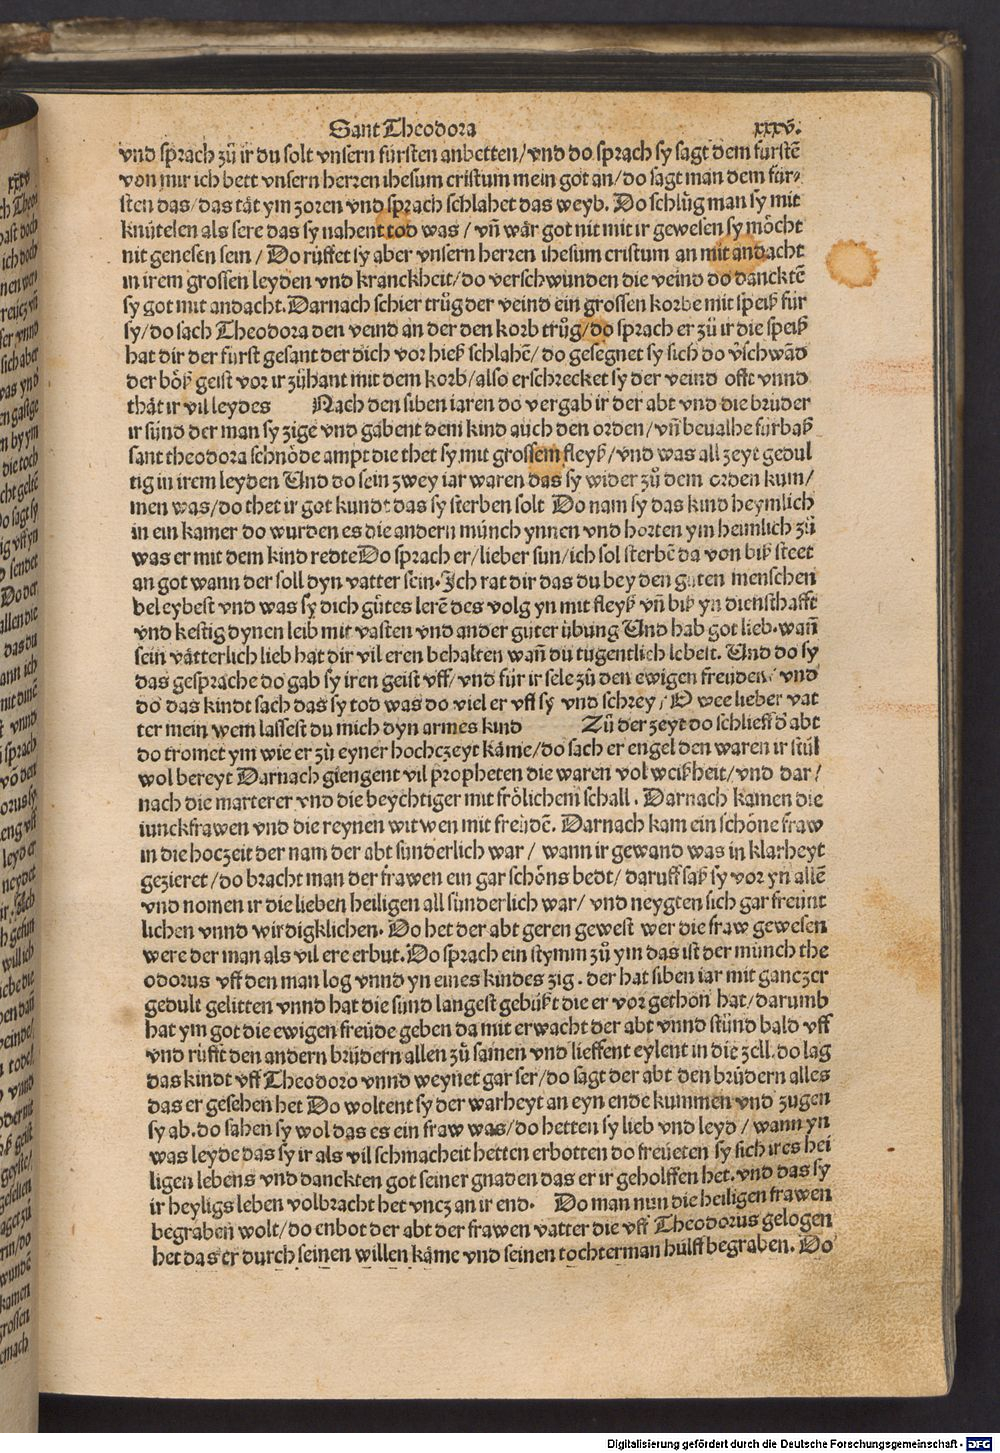 Sant Theodora xxxv̄.
vnd sprach zů ir du solt vnsern fürsten anbetten/vnd do sprach sy sagt dem fürstē
von mir ich bett vnsern herren ihesum cristum mein got an/do sagt man dem für⸗
sten das/das tät ym zoren vnd sprach schlahet das weyb. Do schlůg man sy mit
knütelen als sere das sy nahent tod was/ vn̄ wår got nit mit ir gewesen sy möcht
nit genesen sein/ Do růffet sy aber vnsern herren ihesum cristum an mit andacht
in irem grossen leyden vnd kranckheit/do verschwunden die veind do dancktē
sy got mit andacht. Darnach schier trůg der veind ein grossen korbe mit speiß für
sy/do sach Theodora den veind an der den korb trůg/do sprach er zů ir die speiß
hat dir der fürst gesant der dich vor hieß schlahē/do gesegnet sy sich do v̄schwād
der böß geist vor ir zůhant mit dem korb/also erschrecket sy der veind offt vnnd
thät ir vil leydes Nach den siben iaren do vergab ir der abt vnd die brüder
ir sünd der man sy zige vnd gäbent dem kind auch den orden/vn̄ beualhe fürbaß
sant theodora schnöde ampt die thet sy mit grossem fleyß/vnd was all zeyt gedul
tig in irem leyden Und do sein zwey iar waren das sy wider zů dem orden kum/
men was/do thet ir got kundt das sy sterben solt Do nam sy das kind heymlich
in ein kamer do wurden es die andern münch ynnen vnd horten ym heimlich zů
was er mit dem kind redte Do sprach er/lieber sun/ich sol sterbē da von biß steet
an got wann der soll dyn vatter sein. Ich rat dir das du bey den guten menschen
beleybest vnd was sy dich gůtes lerē des volg yn mit fleyß vn̄ biß yn diensthafft
vnd kestig dynen leib mit vasten vnd ander guter übung Und hab got lieb. wan̄
sein vätterlich lieb hat dir vil eren behalten wan̄ du tugentlich lebest. Und do sy
das gesprache do gab sy iren geist vff/vnd für ir sele zů den ewigen freuden/ vnd
do das kindt sach das sy tod was do viel er vff sy vnd schrey/ O wee lieber vat
ter mein wem lassest du mich dyn armes kind Zů der zeyt do schlieff d̄ abt
do tromet ym wie er zů eyner hochczeyt käme/do sach er engel den waren ir stül
wol bereyt Darnach giengent vil propheten die waren vol weißheit/vnd dar/
nach die marterer vnd die beychtiger mit frölichem schall. Darnach kamen die
iunckfrawen vnd die reynen witwen mit freüdē. Darnach kam ein schöne fraw
in die hoczeit der nam der abt sunderlich war/ wann ir gewand was in klarheyt
gezieret/do bracht man der frawen ein gar schöns bedt/daruff saß sy vor yn allē
vnd nomen ir die lieben heiligen all sünderlich war/ vnd neygten sich gar freünt
lichen vnnd wirdigklichen. Do het der abt geren gewest wer die fraw gewesen
were der man als vil ere erbut. Do sprach ein stymm zů ym das ist der münch the
odorus vff den man log vnnd yn eines kindes zig. der hat siben iar mit ganczer
gedult gelitten vnnd hat die sünd langest gebüßt die er vor gethon hat/darumb
hat ym got die ewigen freüde geben da mit erwacht der abt vnnd stůnd bald vff
vnd růfft den andern brüdern allen zů samen vnd lieffent eylent in die zell. do lag
das kindt vff Theodoro vnnd weynet gar ser/do sagt der abt den brüdern alles
das er gesehen het Do woltent sy der warheyt an eyn ende kummen vnd zugen
sy ab. do sahen sy wol das es ein fraw was/do hetten sy lieb vnd leyd/ wann yn
was leyde das sy ir als vil schmacheit hetten erbotten do freüeten sy sich ires hei
ligen lebens vnd danckten got seiner gnaden das er ir geholffen het. vnd das sy
ir heyligs leben volbracht het vncz an ir end. Do man nun die heiligen frawen
begraben wolt/do enbot der abt der frawen vatter die vff Theodorus gelogen
het das er durch seinen willen käme vnd seinen tochterman hülff begraben. Do
Digitalisierung gefördert durch die Deutsche Forschungsgemeinschaft - DFG